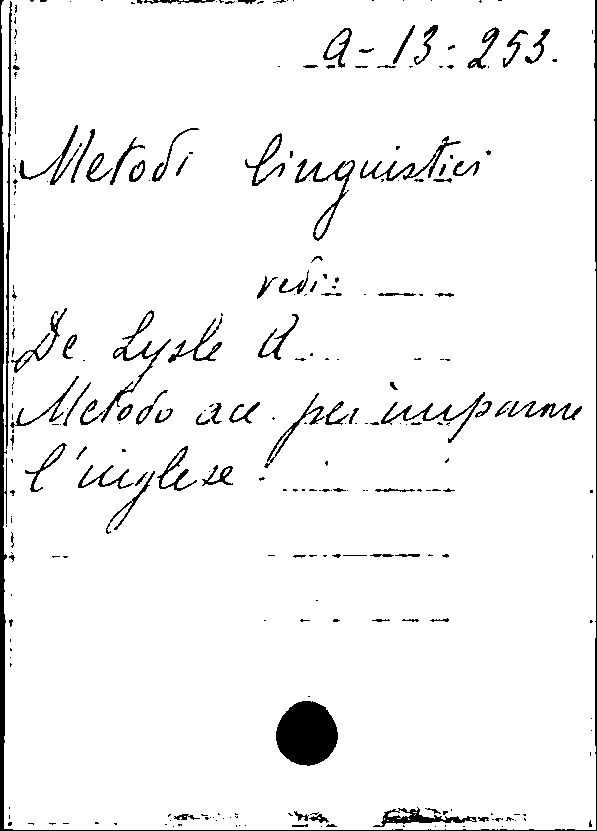 A-13-253.
Metodi linguistici
vedi:
De Lysle A.
Metodo acc. per imparare
l'inglese.